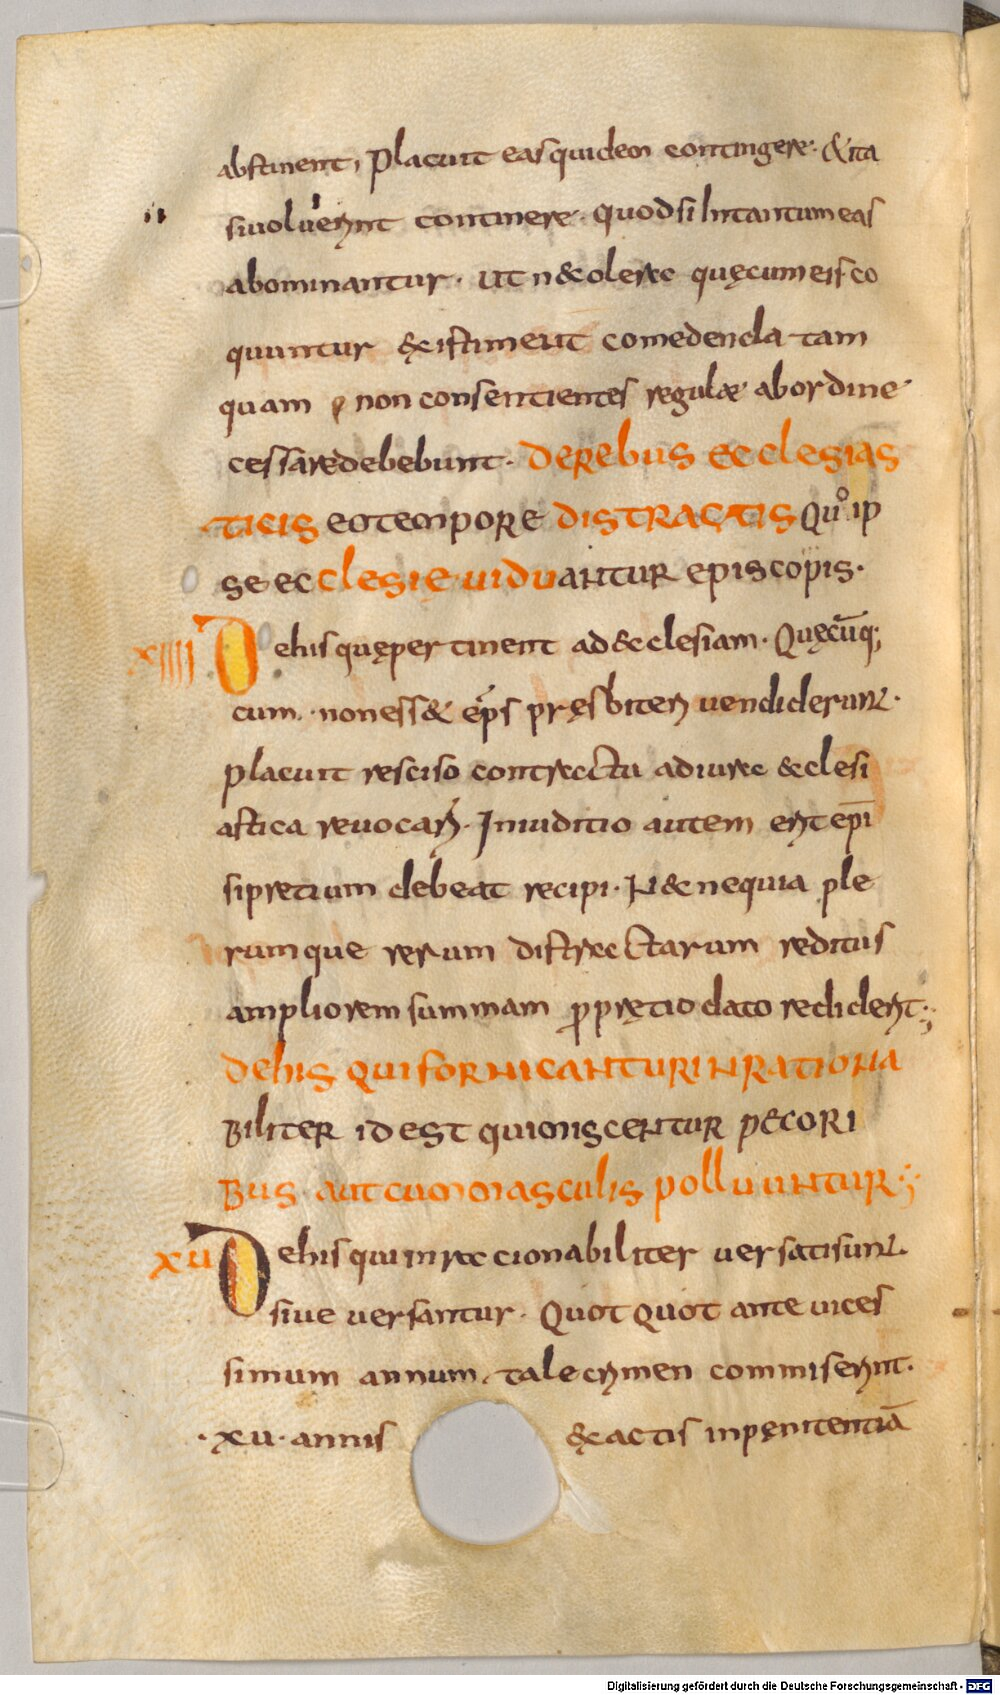 abstinent, Placuit eas quidem contingere. & ita
si uoluerint continere. quod si In tantum eas
abominantur. ut n& olera quęcum eis co
quuntur existiment comedenda tam
quam non consentientes regulæ ab ordine
cessare debebunt. DE REBUS ECCLESIAS
TICIS EO TEMPORE DISTRACTIS QUo IP
SE ECCLESIE UIDUANTUR EPISCOPIS.
XIIII De his quę pertinent ad ecclesiam. Quęcūq;
cum. non ess& ep̄s pręsbiteri uendiderunt.
placuit resciso contractu ad iura ecclesi
astica reuocari. In iuditio autem erit epī
si pretium debeat recipi. N& nequia ple
rumque rerum distractarum reditus
ampliorem summam p pretio dato reddiderit.
DE HIS QUI FORNICANTUR INRATIONA
BILITER ID EST QUI MISCENTUR PECORI
BUS AUT CUM MASCULIS POLLUUNTUR
XU De his qui inrationabiliter uersati sunt.
siue uersantur. Quot quot ante uices
simum annum. tale crimen commiserint.
.xu. annis exactis in pęnitentiā
Digitalisierung gefördert durch die Deutsche Forschungsgemeinschaft - DFG